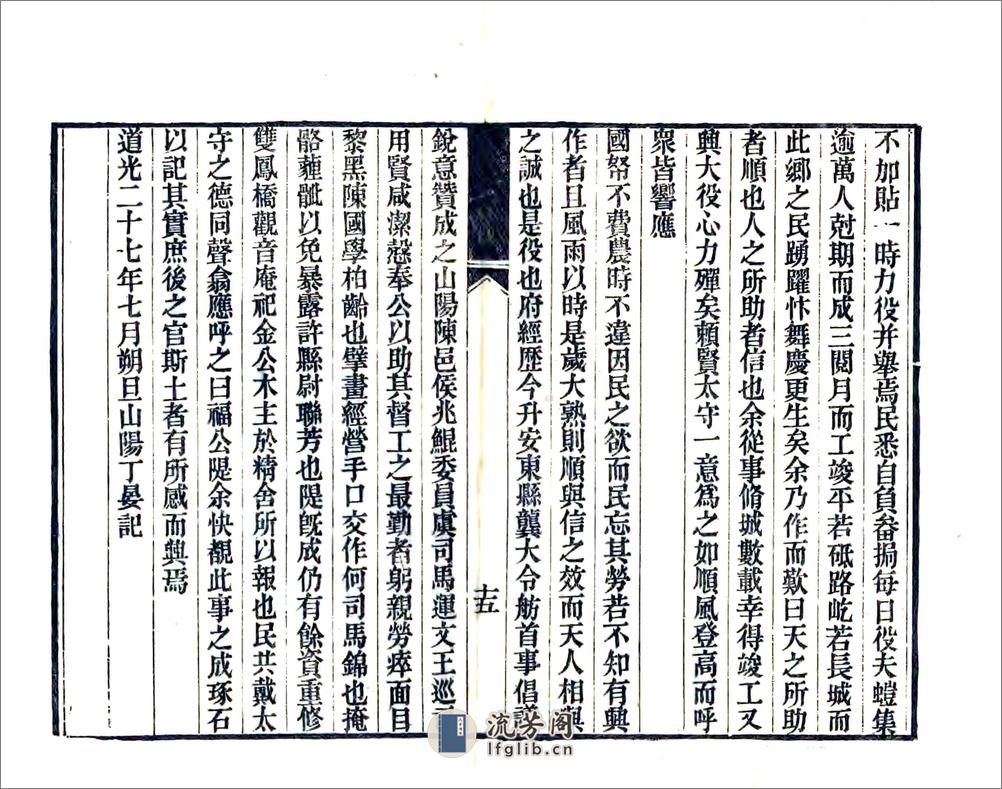 不加貼一時力役并舉焉民悉自負畚挶每日役夫螘集
逾萬人尅期而成三閱月而工竣平若砥路屹若長城而
此鄉之民踴躍忭舞慶更生矣余乃作而歎曰天之所助
者順也人之所助者信也余從事脩城數載幸得竣工又
興大役心力殫矣賴賢太守一意為之如順風登高而呼
衆皆響應
國帑不費農時不違因民之欲而民忘其勞若不知有興
作者且風雨以時是歲大熟則順與信之效而天人相與
之誠也是役也府經歷今升安東縣龔大令舫首事倡議
十五
銳意贊成之山陽陳邑侯兆鯤委員虞司馬運文王巡
用賢咸潔慤奉公以助其督工之最勤者躬親勞瘁面目
黎黑陳國學柏齡也擘畫經營手口交作何司馬錦也掩
骼薶骴以免暴露許縣尉聯芳也隄旣成仍有餘資重修
雙鳳橋觀音庵祀金公木主於精舍所以報也民共戴太
守之德同聲翕應呼之曰福公隄余快覩此事之成琢石
以記其實庶後之官斯土者有所感而興焉
道光二十七年七月朔旦山陽丁晏記
流芳阁
lfglib.cn